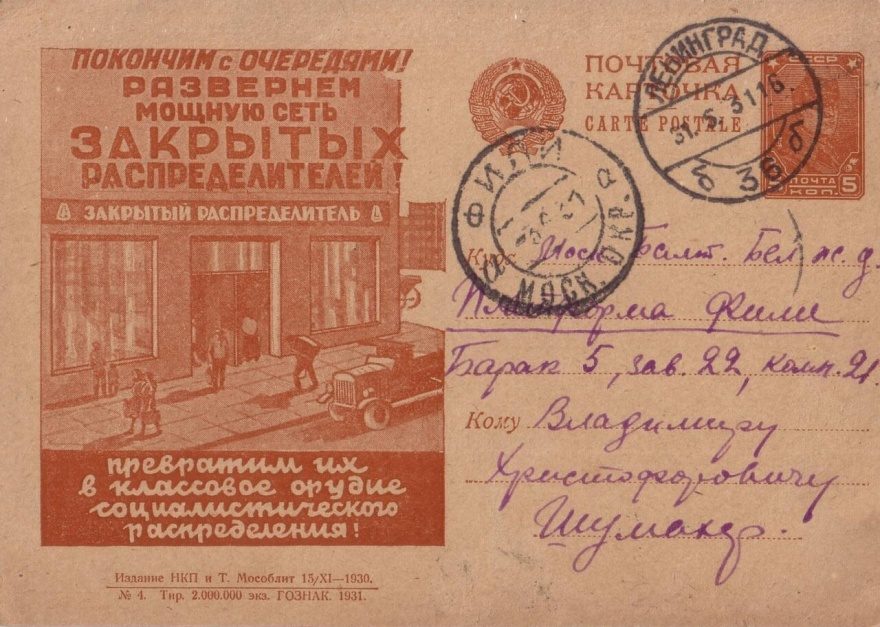 ПОКОНЧИМ с ОЧЕРЕДЯМИ!
РАЗВЕРНЕМ
МОЩНУЮ СЕТЬ
ЗАКРЫТЫХ
РАСПРЕДЕЛИТЕЛЕЙ!
ЗАКРЫТЫЙ РАСПРЕДЕЛИТЕЛЬ
превратим их
в классовое орудие
социалистического
распределения!
Издание НКП и Т. Мособлит 15/XI—1930.
№ 4. Тир. 2.000.000 экз. ГОЗНАК. 1931.
ПОЧТОВАЯ
КАРТОЧКА
CARTE POSTALE
СССР
ПОЧТА
КОП. 5
ЛЕНИНГРАД
31.5.3116.
36 б
ФИЛИ
МОСК. ОКР.
Куда Моск. Балт. Бел ж. д.
Платформа Фили
Барак 5, зав. 22, комн. 21.
Кому Владимиру
Христофоровичу